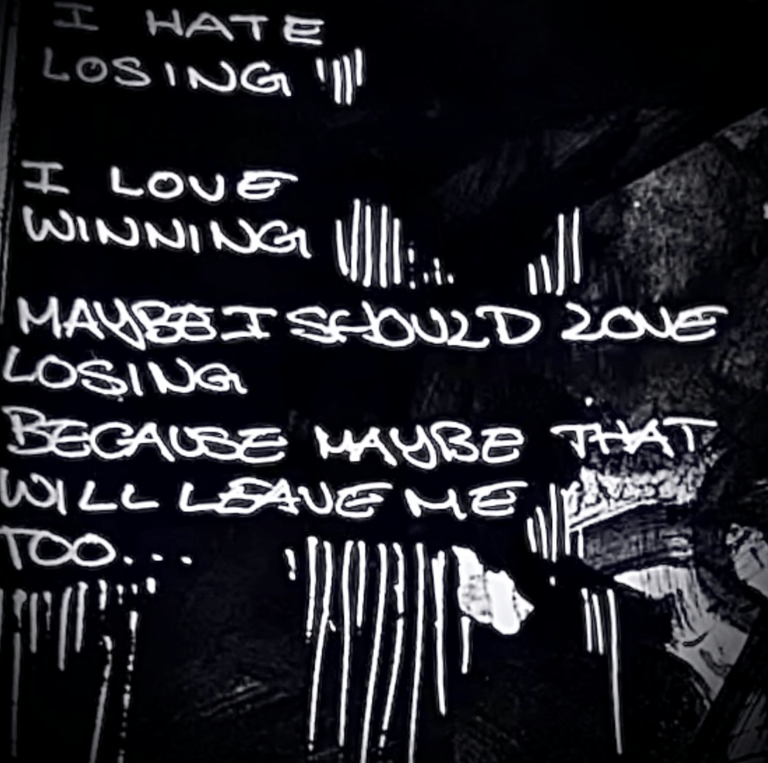 I HATE
LOSING
I LOVE
WINNING
MAYBE I SHOULD LOVE
LOSING
BECAUSE MAYBE THAT
WILL LEAVE ME
TOO...